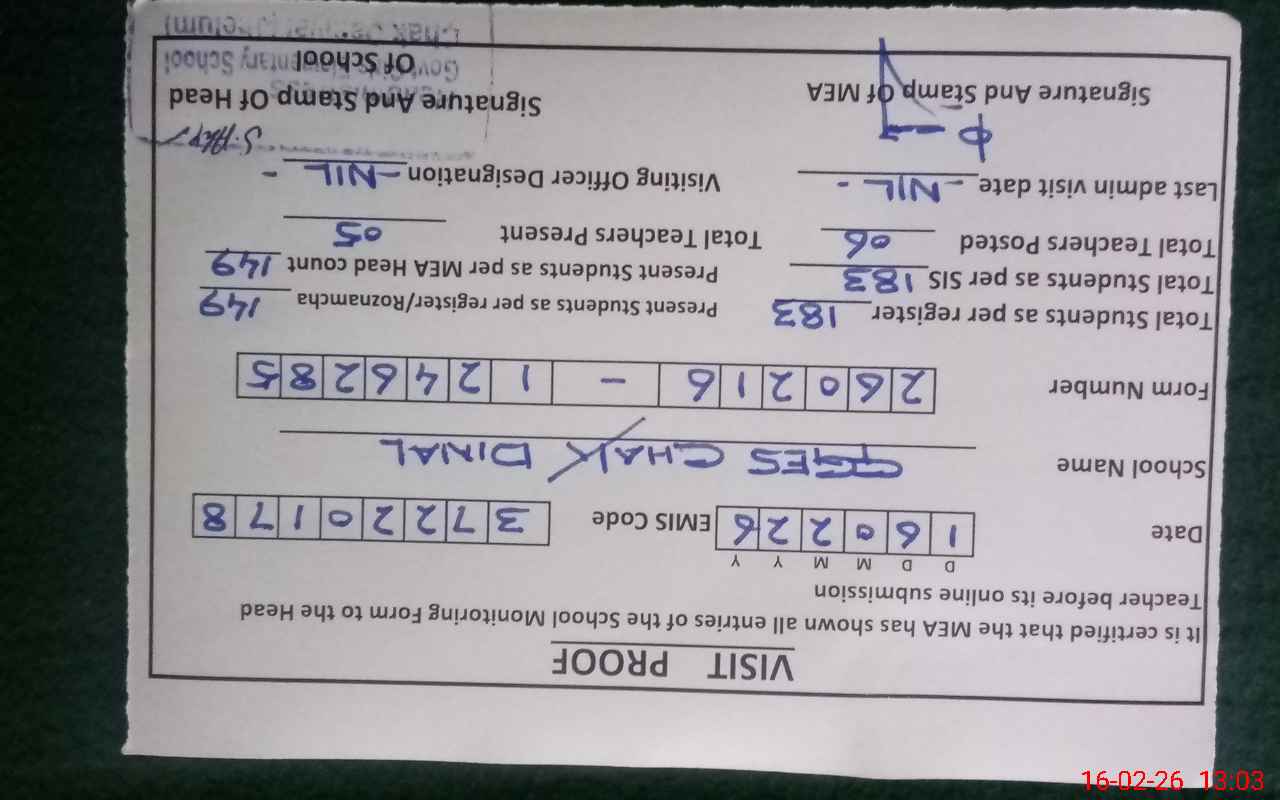 VISIT PROOF
It is certified that the MEA has shown all entries of the School Monitoring Form to the Head
Teacher before its online submission
D D M M Y Y
Date 1 6 0 2 2 6 EMIS Code 3 7 2 2 0 1 7 8
School Name GGES CHAK DINAL
Form Number 2 6 0 2 1 6 - 1 2 4 6 2 8 5
Total Students as per register 183 Present Students as per register/Roznamcha 149
Total Students as per SIS 183 Present Students as per MEA Head count 149
Total Teachers Posted 06 Total Teachers Present 05
Last admin visit date - NIL - Visiting Officer Designation - NIL -
Signature And Stamp Of MEA Signature And Stamp Of Head
Of School
Govt Girls Elementary School
16-02-26 13:03